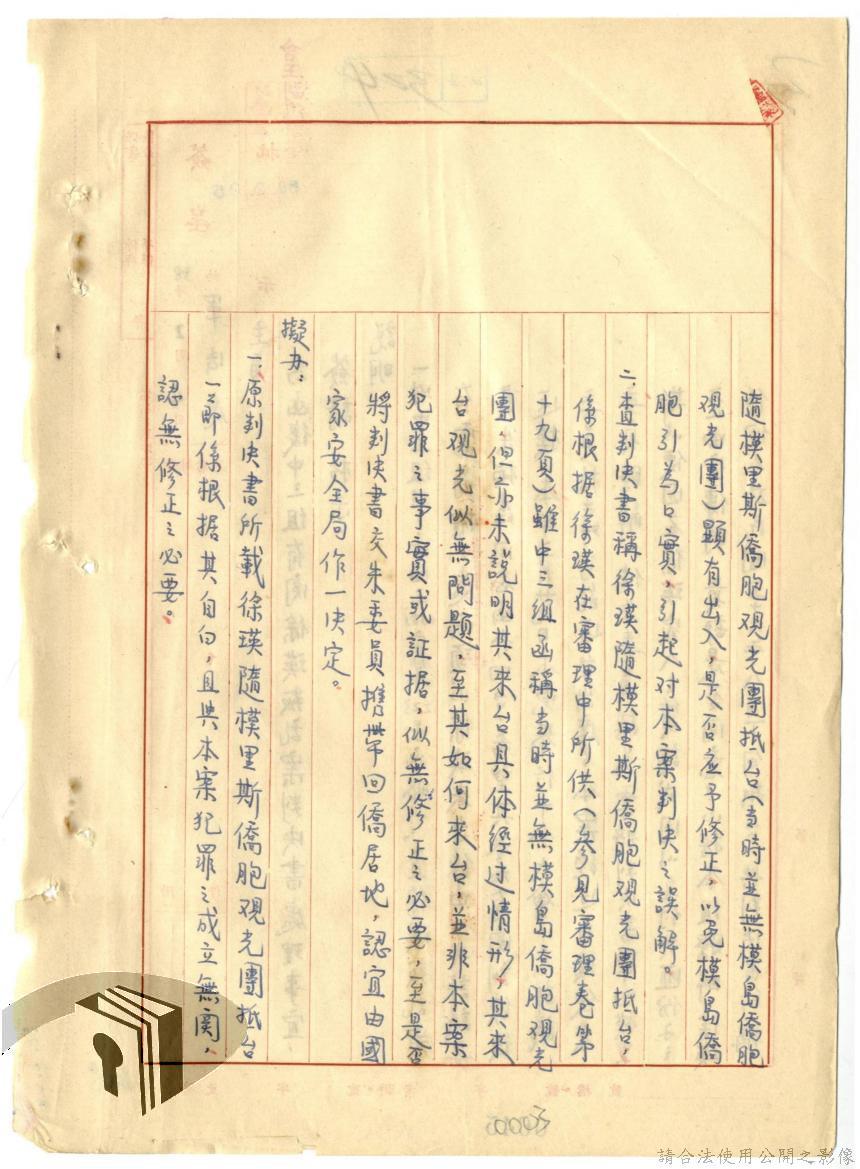 隨模里斯僑胞观光團抵台(当時並無模島僑胞
观光團)顯有出入,是否应予修正,以免模島僑
胞引為口實,引起对本案判决之誤解。
二、查判决書稱徐瑛隨模里斯僑胞观光團抵台,
係根据徐瑛在審理中所供(參見審理卷第
十九頁)雖中三組函稱当時並無模島僑胞观光
團,但亦未説明其來台具体經过情形,其來
台观光似無問題,至其如何來台,並非本案
犯罪之事實或証据,似無修正之必要,至是否
將判决書交朱委員携帶回僑居地,認宜由國
家安全局作一决定。
擬办:
一、原判决書所載徐瑛隨模里斯僑胞观光團抵台
一節係根据其自白,且與本案犯罪之成立無関,
認無修正之必要。
請合法使用公開之影像